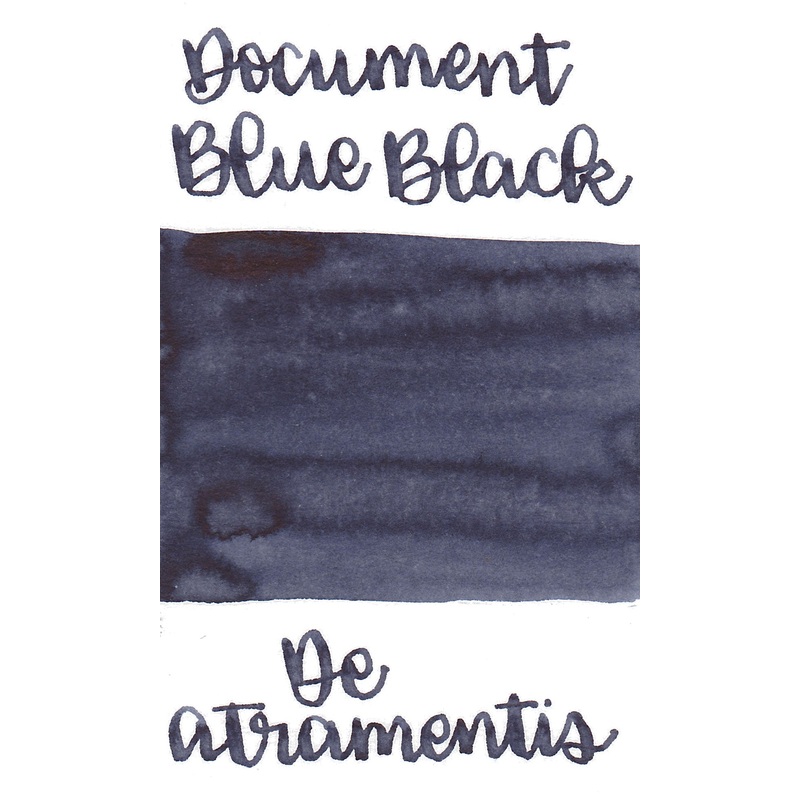 Document
Blue Black
De
atramentis